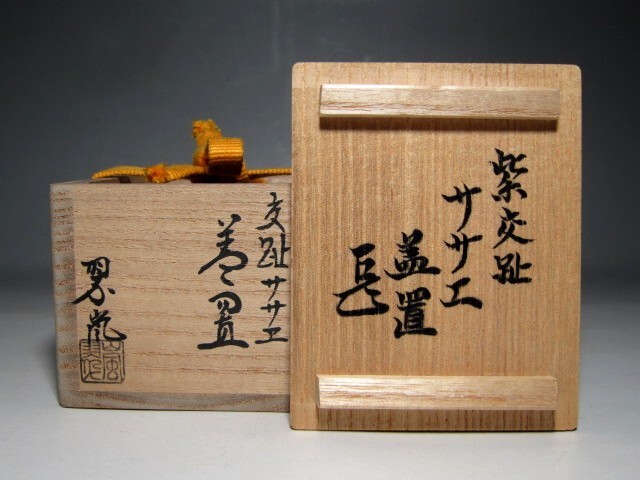 紫交趾
サヾエ
蓋置
交趾サヾエ
蓋置
翠嵐